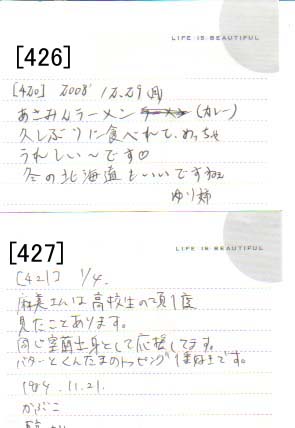 LIFE IS BEAUTIFUL
[426]
[420] 2008' 12.29 (月)
あさみんラーメン (カレー)
久しぶりに食べれて、めっちゃ
うれしい〜です♡
冬の北海道もいいですねェ
ゆり姉
LIFE IS BEAUTIFUL
[427]
[421] 1/4.
麻美さんは高校生の頃1度
見たことあります。
同じ室蘭出身として応援してます。
バターとくんたまのトッピング1番好きです。
1984.11.21.
かぷこ